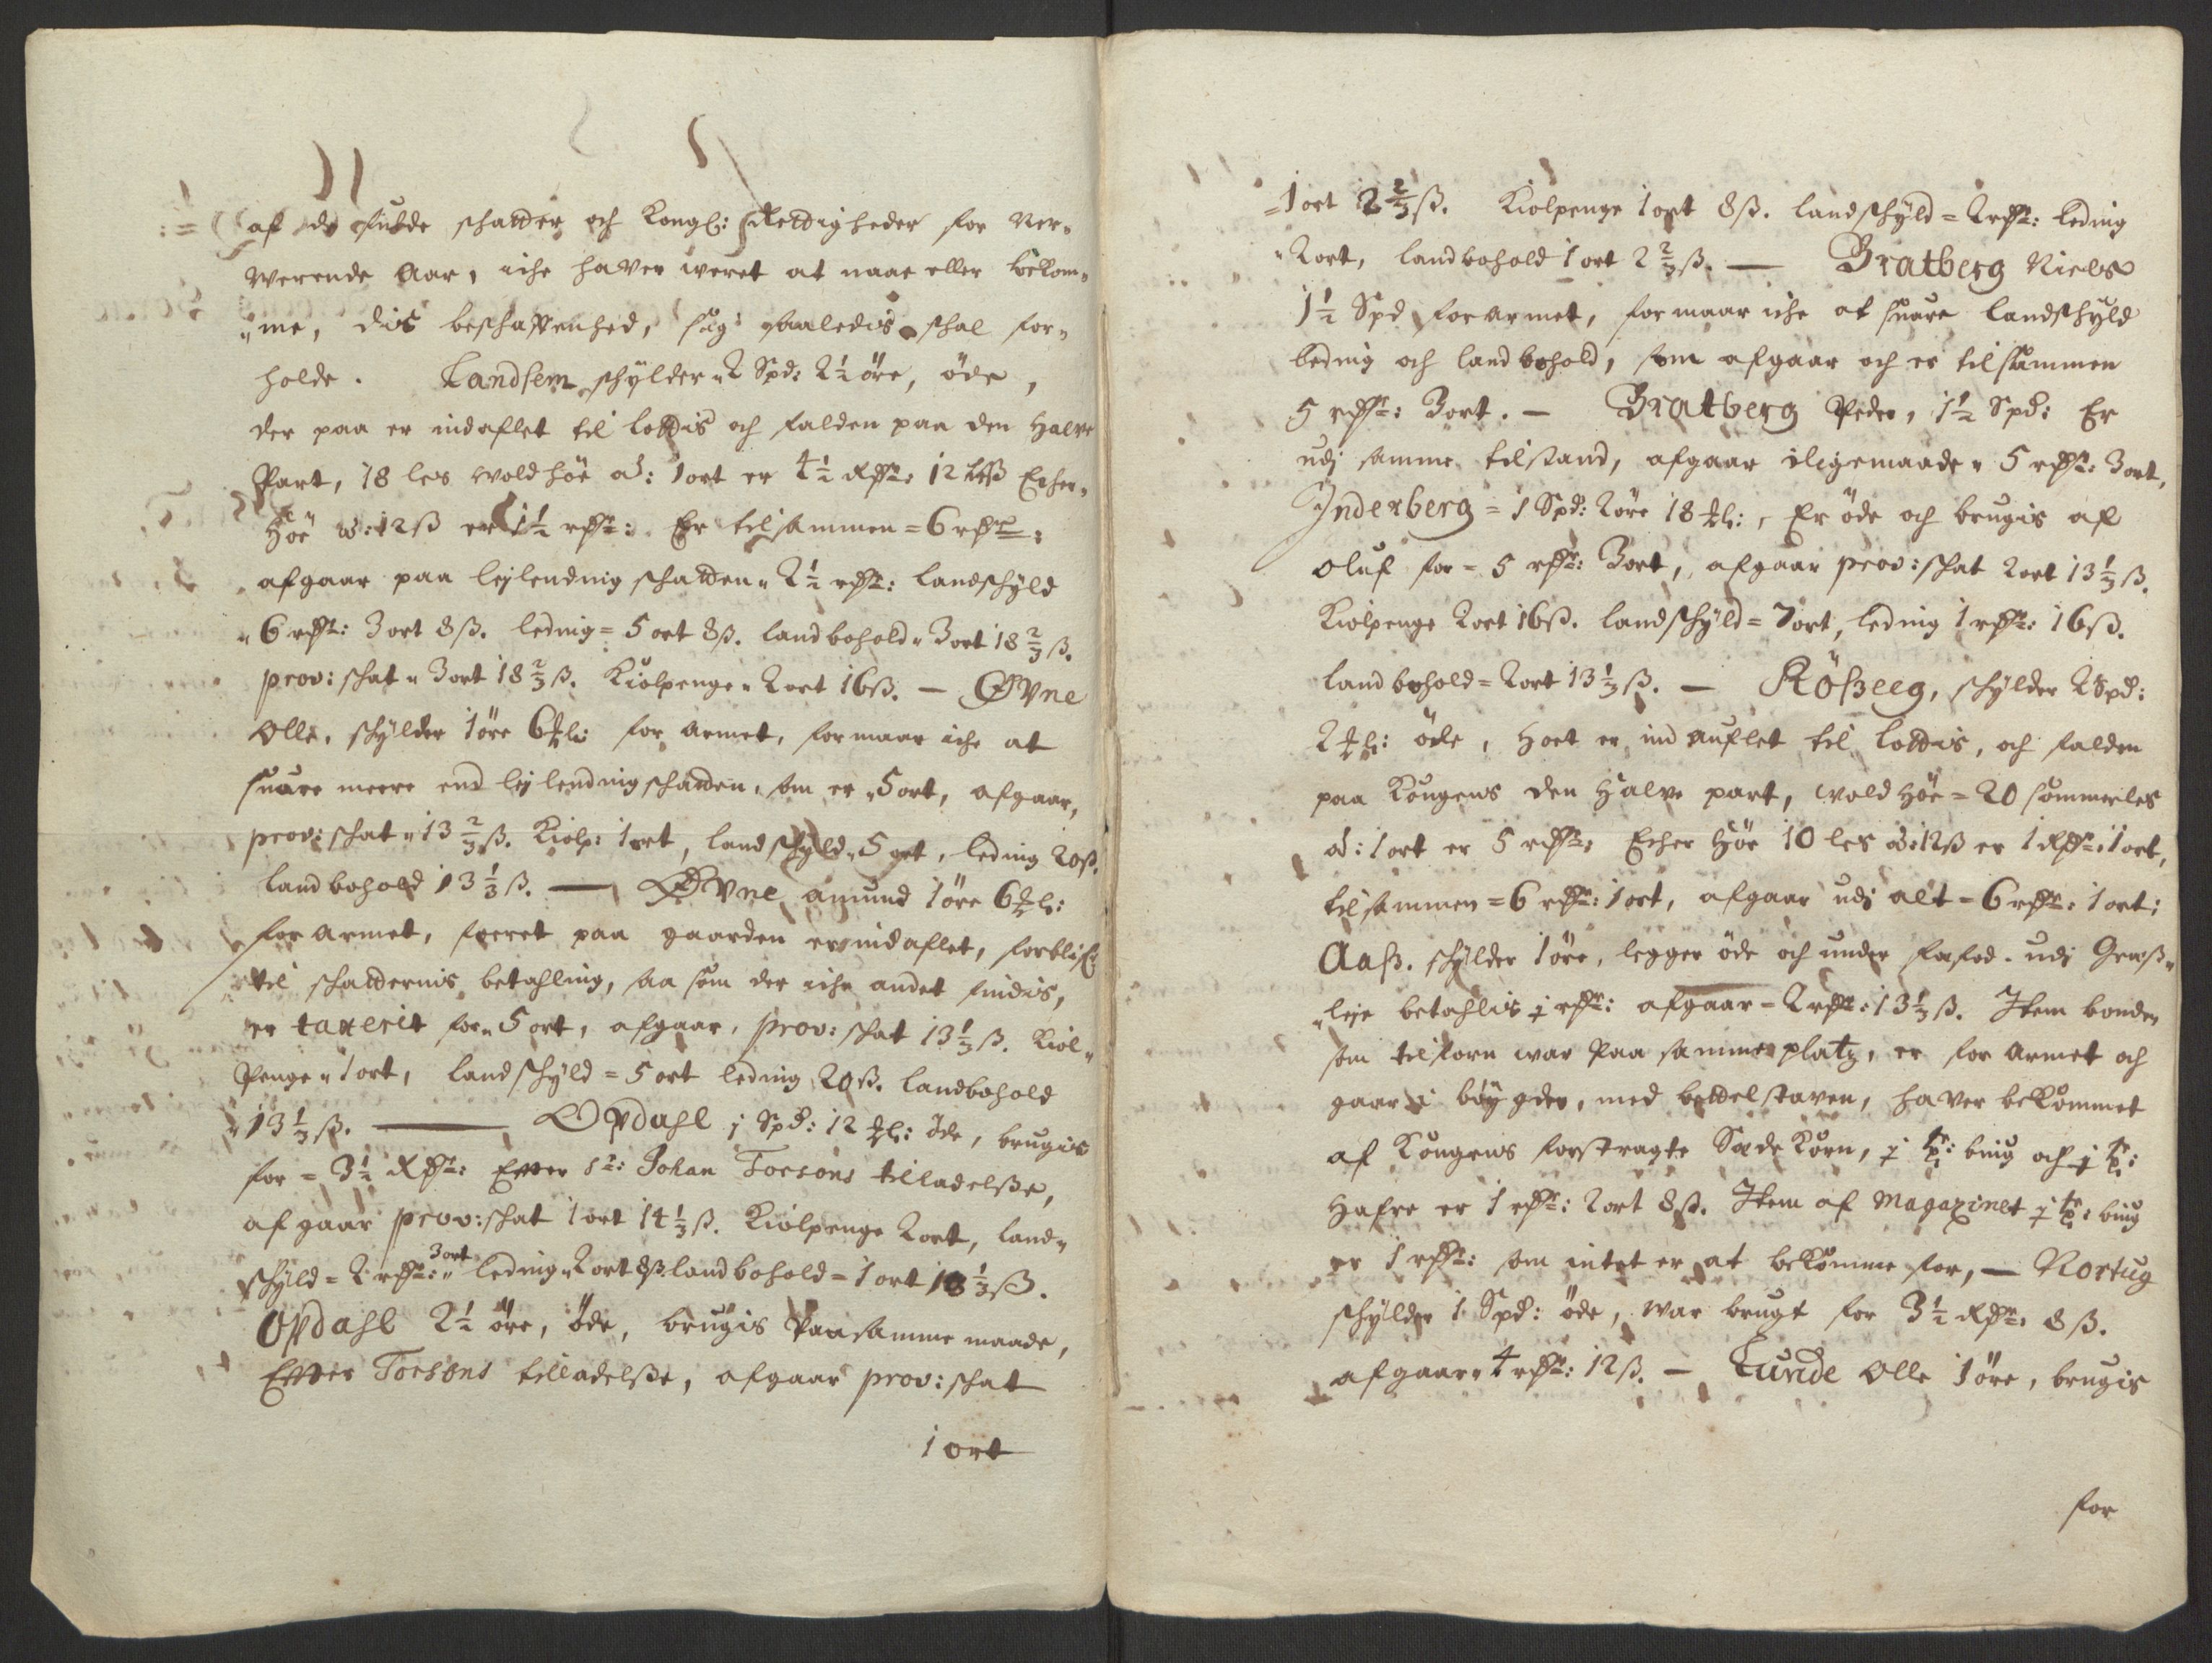 af de fulde schatter och Kongl: Rettigheder for Ner-
werende Aar, iche haver weret at naae eller bekom-
me, dis beschaffenhed, sig saaledis schal for-
holde. Landsem schylder 2 Spd: 2½ öre, öde,
der paa er indaflet til lottis och falden paa den halve
Part, 18 les woldhöe ad: 1 ort er 4½ Rdr: 12 less Echer-
höe ad: 12 ß er 1½ rdr: Er tilsammen = 6 rdr:
afgaar paa leylending schatten 2½ rdr: Landschyld
6 rdr: 3 ort 8 ß. leding = 5 ort 8 ß. landbohold 3 ort 18⅔ ß.
prov: schat 3 ort 18⅔ ß. Kiolpenge 2 ort 16 ß. — Øvne
Olle, schylder 1 öre 6 ¥l: for armet, formaar iche at
suare meere end leylending schatten, som er 5 ort, afgaar,
prov: schat 13⅔ ß. Kiolp: 1 ort, landschyld 5 ort, leding 20 ß.
landbohold 13⅓ ß. — Øvne amund 1 öre 6 ¥l:
for armet, foeret paa gaarden er indaflet, forblifr
til schatternis betahling, saa som der iche andet findis,
er taxerit for 5 ort, afgaar, prov: schat 13⅓ ß. Kiol-
Penge 1 ort, landschyld = 5 ort leding 20 ß. landbohold
13⅓ ß. — Opdahl j Spd: 12 ¥l: öde, brugis
for = 3½ Rdr: Effter Sr: Johan Torsons tilladelsse,
afgaar prov: schat 1 ort 14⅓ ß. Kiolpenge 2 ort, land-
schyld = 2 rdr: 3 ort leding 2 ort 8 ß landbohold = 1 ort 18⅓ ß.
Opdahl 2½ öre, öde, brugis Paa samme maade,
Effter Torsons tilladelsse, afgaar prov: schat
1 ort
1 ort 2⅔ ß. Kiolpenge 1 ort 8 ß. landschyld = 2 rdr: leding
2 ort, landbohold 1 ort 2⅔ ß. — Bratberg Niels
1½ Spd for armet, formaar iche at suare landschyld
leding och landbohold, som afgaar och er tilsammen
5 rdr: 3 ort. — Bratberg Peder, 1½ Spd: Er
udj samme tilstand, afgaar iligemaade 5 rdr: 3 ort,
Inderberg = 1 Spd: 2 öre 18 ¥l:, Er öde och brugis af
Oluf for = 5 rdr: 3 ort, afgaar prov: schat 2 ort 13⅓ ß.
Kiolpenge 2 ort 16 ß. landschyld = 7 ort, leding 1 rdr: 16 ß.
landbohold = 2 ort 13⅓ ß. — Rößeeg, schylder 2 Spd:
2 ¥l: öde, hoet er ind auflet til lottis, och falden
paa Kongens den halve part, wold höe = 20 sommerles
ad: 1 ort er 5 rdr: Echer höe 10 les ad: 12 ß er 1 Rdr: 1 ort,
tilsammen = 6 rdr: 1 ort, afgaar udj alt = 6 rdr: 1 ort:
Aaß. schylder 1 öre, legger öde och under fæfod. udj Græß-
leje betahlis j rdr: afgaar = 2 rdr: 13⅓ ß. Item bonden
som tilforn war Paa samme platz, er for armet och
gaar i böygden, med bettelstaven, haver bekommet
af Kongens forstragte Sæde Korn, j tr: biug och j tr:
hafre er 1 rdr: 2 ort 8 ß. Item af Magazinet j tr: biug
er 1 rdr: som intet er at bekomme for, — Nortug
schylder 1 Spd: öde, war brugt for 3½ Rdr: 8 ß.
afgaar 4 rdr: 12 ß. — Lunde Olle 1 öre, brugis
for